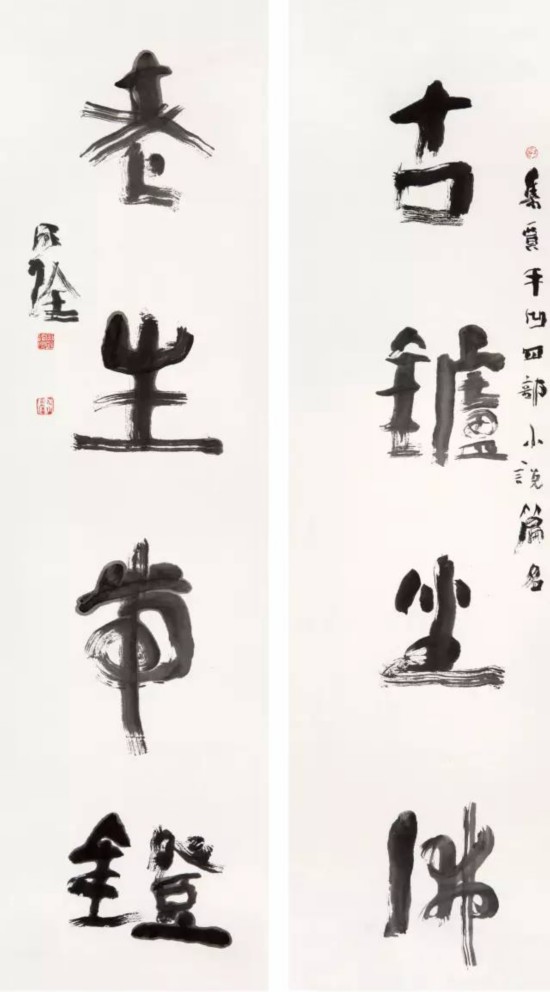 集賈平凹四部小說篇名
古鑪坐佛
老生帶鐙